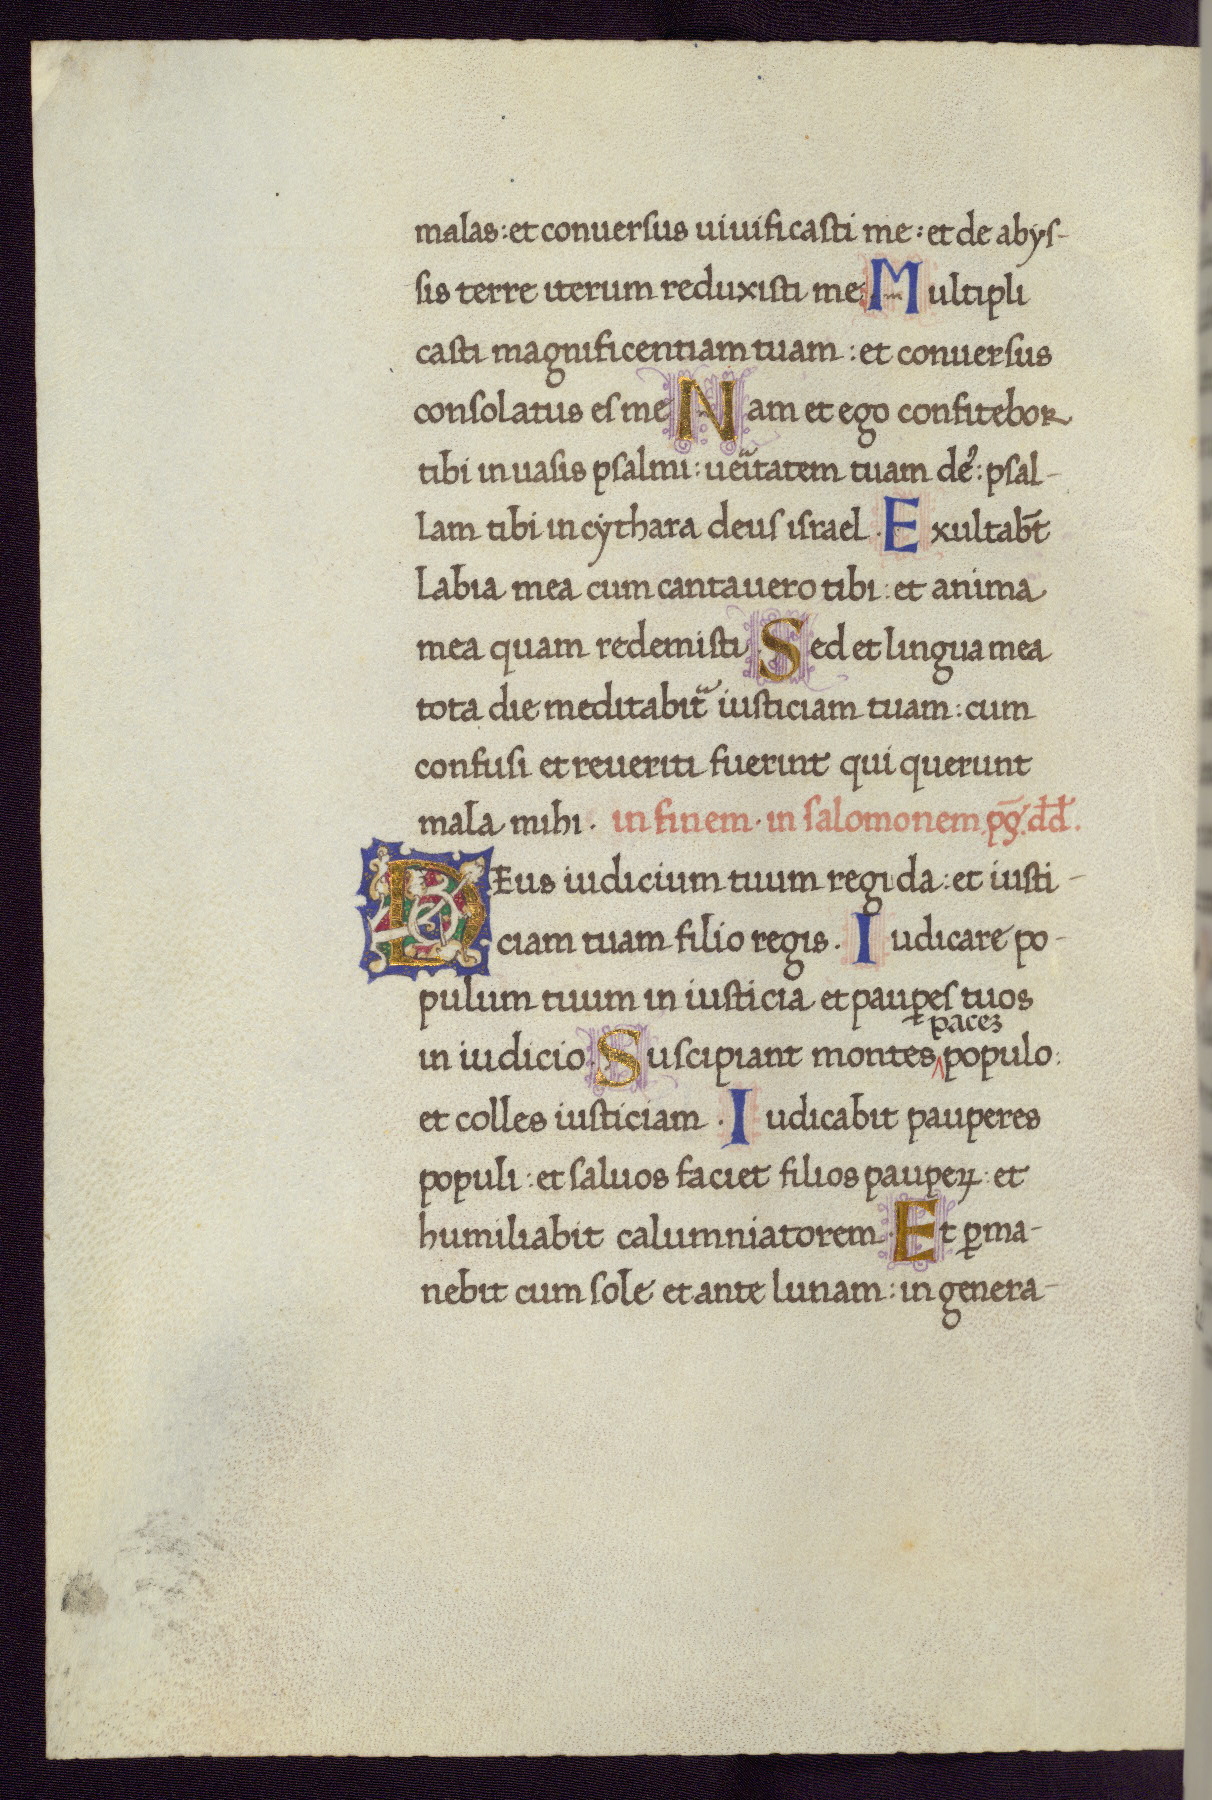 malas: et conuersus uiuificasti me: et de abys-
sis terre iterum reduxisti me. Multipli
casti magnificentiam tuam: et conuersus
consolatus es me. Nam et ego confitebor
tibi in uasis psalmi: ueritatem tuam de9: psal-
lam tibi in cythara deus israel. Exultabt̄
labia mea cum cantauero tibi: et anima
mea quam redemisti. Sed et lingua mea
tota die meditabit᷑ iusticiam tuam: cum
confusi et reueriti fuerint qui querunt
mala mihi. in finem. in salomonem. ps̄. dd̄.
DEus iudicium tuum regi da: et iusti-
ciam tuam filio regis. Iudicare po-
pulum tuum in iusticia et paup̱es tuos
pacēꝫ
in iudicio. Suscipiant montes populo:
et colles iusticiam. Iudicabit pauperes
populi: et saluos faciet filios pauperꝝ: et
humiliabit calumniatorem. Et ꝑma-
nebit cum sole et ante lunam: in genera-